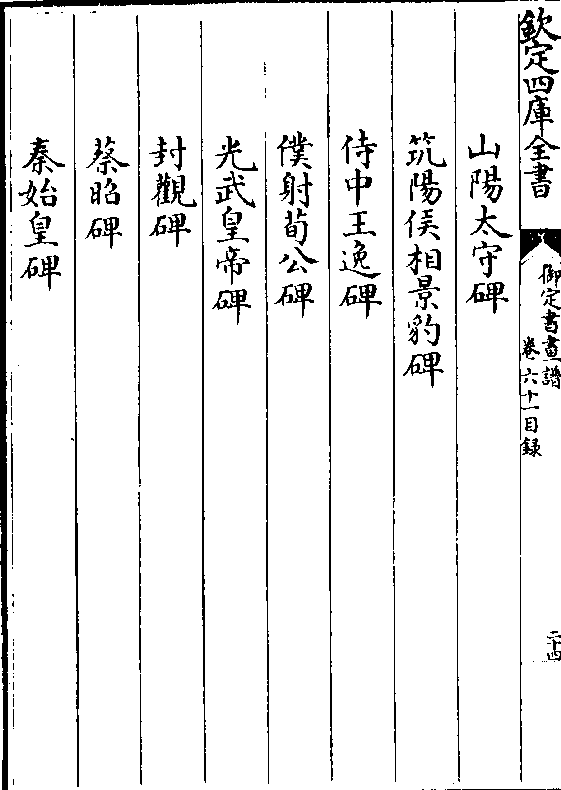 欽定四庫全書
御定書畫譜
卷六十一目録
二十四
山陽太守碑
筑陽侯相景豹碑
侍中王逸碑
僕射荀公碑
光武皇帝碑
封觀碑
蔡昭碑
秦始皇碑